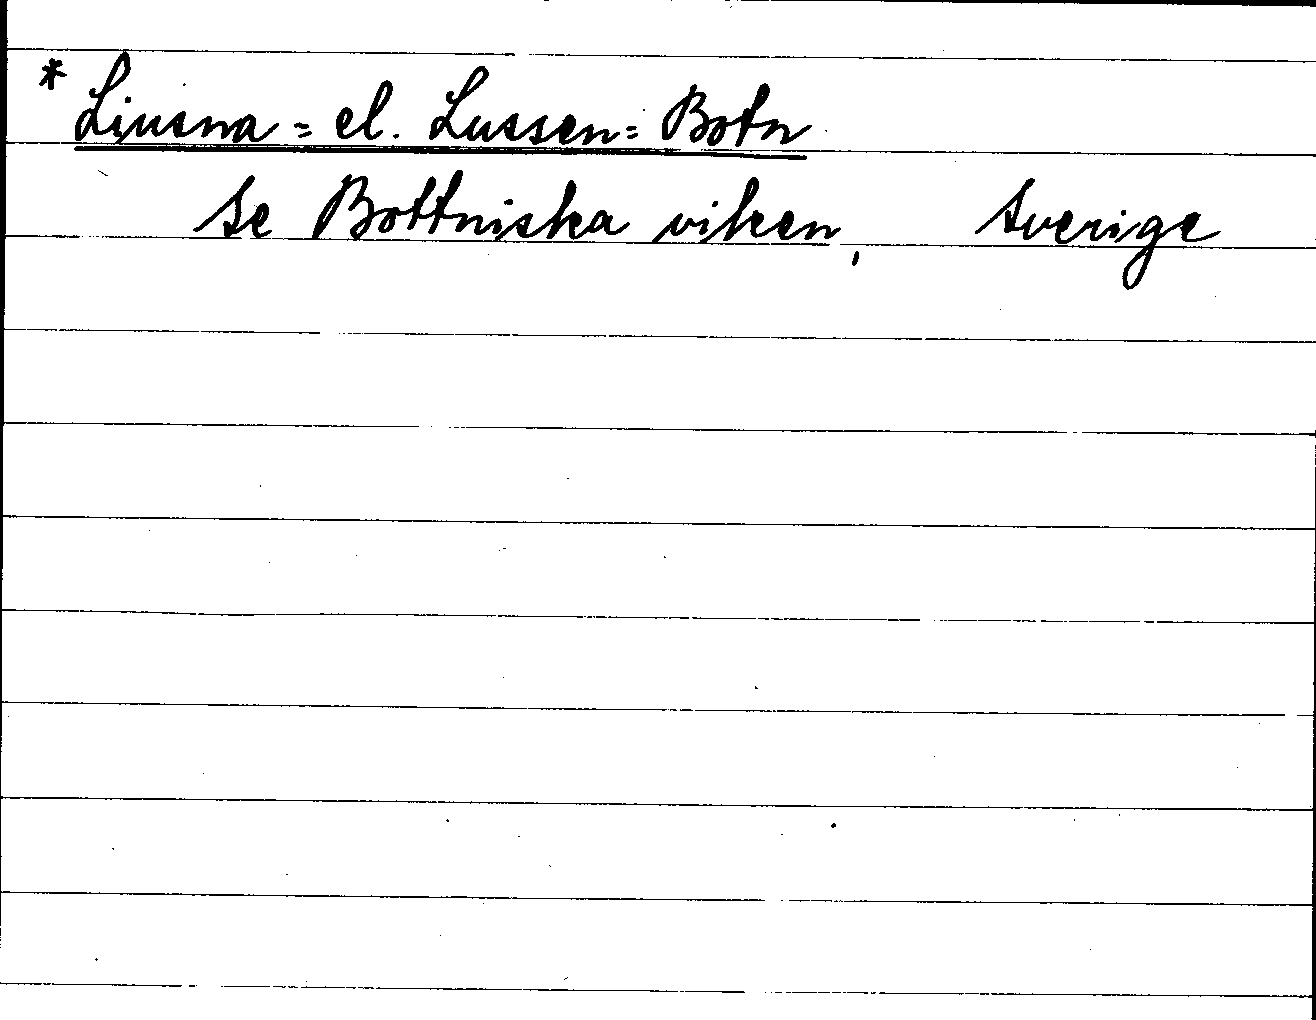 * Liusna= el. Lussen= Botn
se Bottniska viken, Sverige